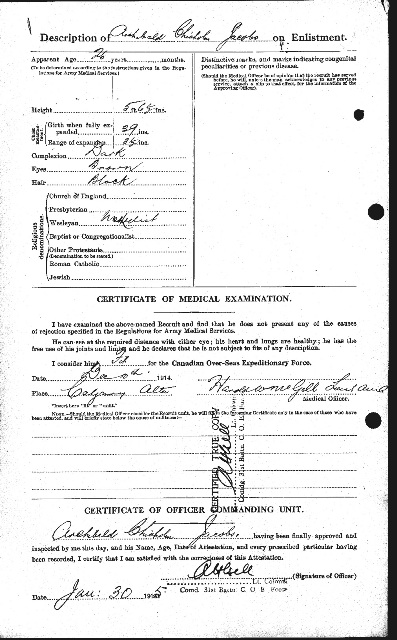 Description of Archibald Chisholm Jacobs on Enlistment.
Apparent Age 26 years months.
(To be determined according to the instructions given in the Regulations for Army Medical Services.)
Distinctive marks, and marks indicating congenital
peculiarities or previous disease.
(Should the Medical Officer be of opinion that the recruit has served
before, he will, unless the man acknowledges to any previous
service, attach a slip to that effect, for the information of the
Approving Officer).
Height 5 ft. 6 ins.
Girth when fully expanded 39 ins.
Range of expansion ins.
Complexion Dark
Eyes Brown
Hair Black
Religious denominations.
Church of England
Presbyterian
Wesleyan
Baptist or Congregationalist
Other Protestants
(Denomination to be stated.)
Roman Catholic
Jewish
CERTIFICATE OF MEDICAL EXAMINATION.
I have examined the above-named Recruit and find that he does not present any of the causes
of rejection specified in the Regulations for Army Medical Services.
He can see at the required distance with either eye; his heart and lungs are healthy; he has the
free use of his joints and limbs, and he declares that he is not subject to fits of any description.
I consider him fit for the Canadian Over-Seas Expeditionary Force.
Date 1914.
Place Calgary Alta
Medical Officer.
*Insert here "fit" or "unfit."
NOTE.—Should the Medical Officer consider the Recruit unfit, he will fill in the foregoing Certificate only in the case of those who have
been attested, and will briefly state below the cause of unfitness:—
CERTIFIED TRUE COPY
Lt. Colonel
Comdg. 31st Battn. C. O. E. Force
CERTIFICATE OF OFFICER COMMANDING UNIT.
Archibald Chisholm Jacobs having been finally approved and
inspected by me this day, and his Name, Age, Date of Attestation, and every prescribed particular having
been recorded, I certify that I am satisfied with the correctness of this Attestation.
(Signature of Officer)
Lt. Colonel
Comd. 31st Battn. C. O. E. Force
Date Jan. 30 1915